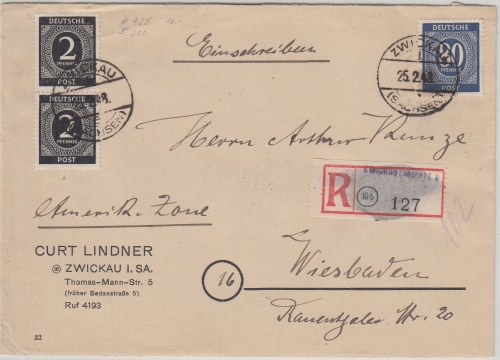 DEUTSCHE
2
PFENNIG
POST
DEUTSCHE
2
PFENNIG
POST
DEUTSCHE
80
PFENNIG
POST
ZWICKAU
25.2.48
(SACHSEN)
Einschreiben
Herrn Arthur Kunze
R
10b
127
Amerik. Zone
CURT LINDNER
ZWICKAU I. SA.
Thomas-Mann-Str. 5
(früher Sedanstraße 5)
Ruf 4193
16
Wiesbaden
Rauenthaler Str. 20